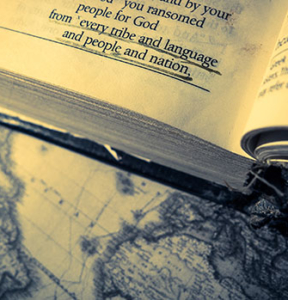 and by your
you ransomed
people for God
from "every tribe and language
and people and nation.